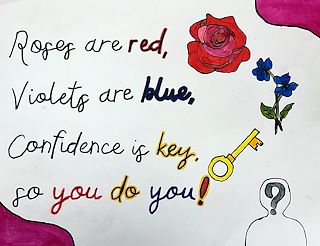 Roses are red,
Violets are blue,
Confidence is key,
so you do you!
?